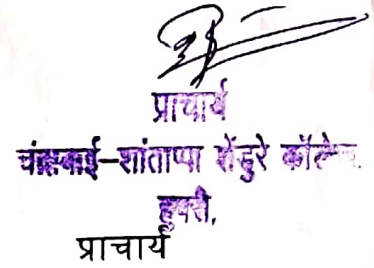 प्राचार्य
चंद्राबाई-शांताप्पा शेंडुरे कॉलेज
हुपरी,
प्राचार्य